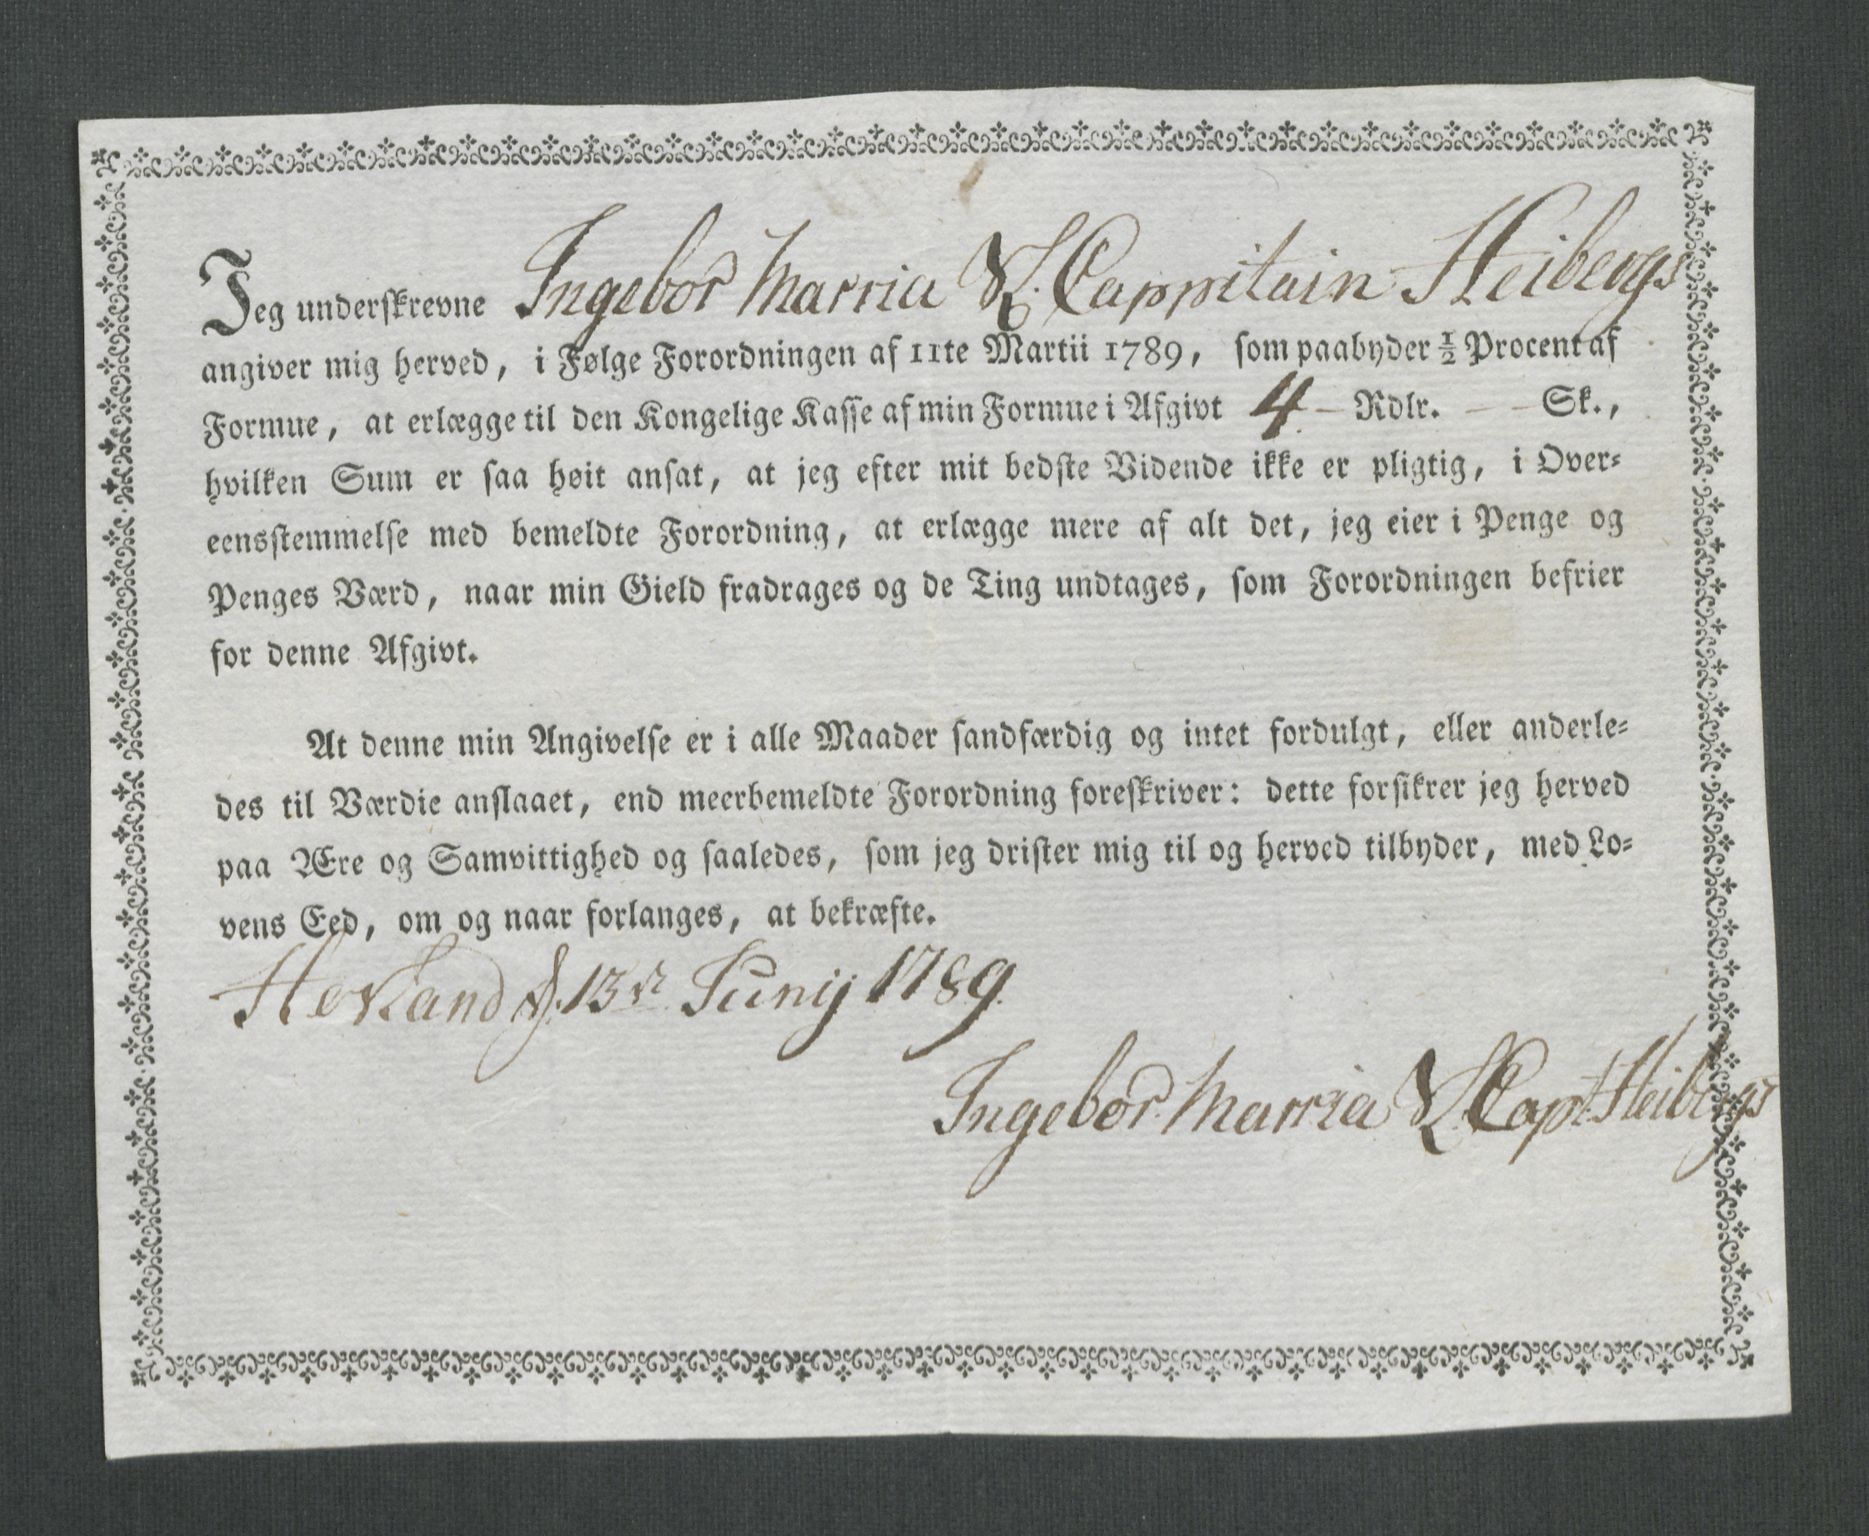 Jeg underskrevne Ingebor Marria Sl. Cappitain Heibergs
angiver mig herved, i Følge Forordningen af 11te Martii 1789, som paabyder ½ Procent af
Formue, at erlægge til den Kongelige Kasse af min Formue i Afgivt 4 – Rdlr. – – Sk.,
hvilken Sum er saa høit ansat, at jeg efter mit bedste Vidende ikke er pligtig, i Over-
eensstemmelse med bemeldte Forordning, at erlægge mere af alt det, jeg eier i Penge og
Penges Værd, naar min Gield fradrages og de Ting undtages, som Forordningen befrier
for denne Afgivt.
At denne min Angivelse er i alle Maader sandfærdig og intet fordulgt, eller anderle-
des til Værdie anslaaet, end meerbemeldte Forordning foreskriver: dette forsikrer jeg herved
paa Ære og Samvittighed og saaledes, som jeg drister mig til og herved tilbyder, med Lo-
vens Eed, om og naar forlanges, at bekræfte.
d. 13de Junij 1789
Ingebor Marria Sl. Capt. Heibergs